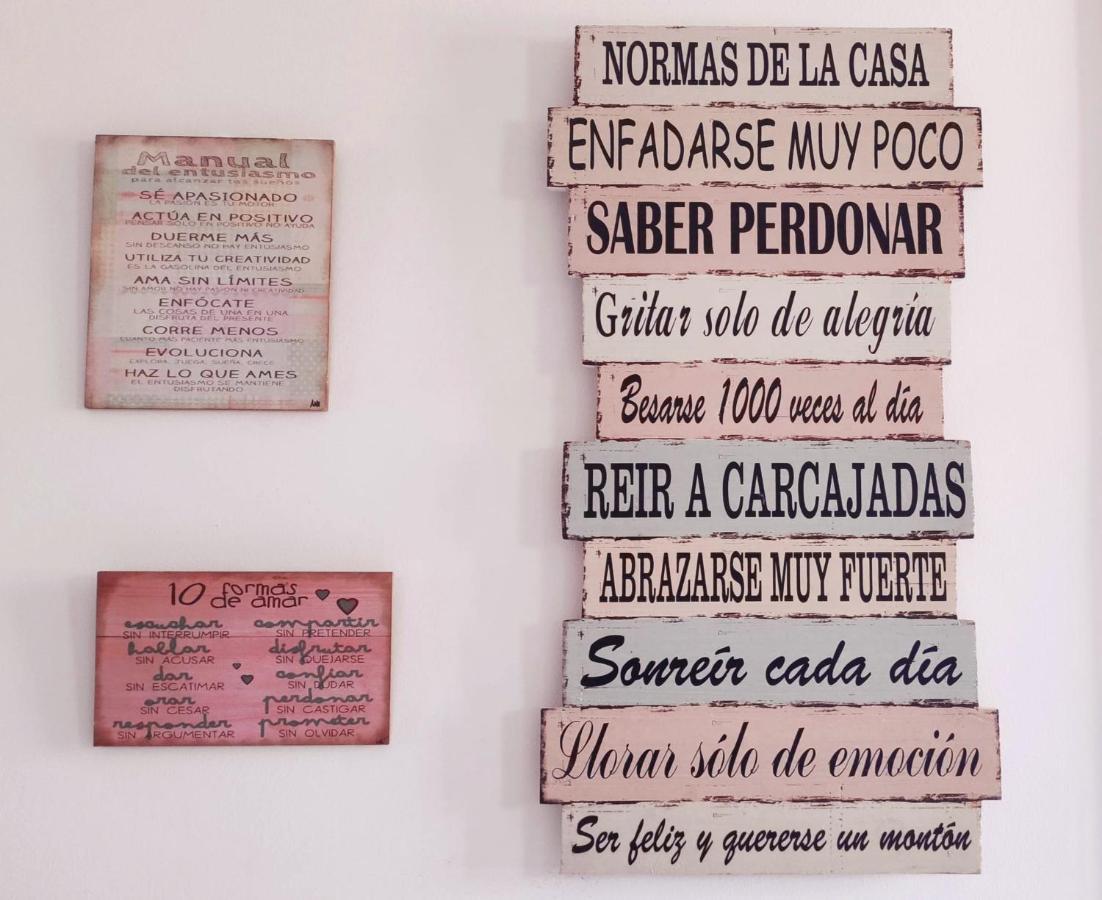 Manual
del entusiasmo
para alcanzar tus sueños
SÉ APASIONADO
LA PASIÓN ES TU MOTOR
ACTÚA EN POSITIVO
PENSAR SOLO EN POSITIVO NO AYUDA
DUERME MÁS
SIN DESCANSO NO HAY ENTUSIASMO
UTILIZA TU CREATIVIDAD
ES LA GASOLINA DEL ENTUSIASMO
AMA SIN LÍMITES
SIN AMOR NO HAY PASIÓN NI CREATIVIDAD
ENFÓCATE
LAS COSAS DE UNA EN UNA
DISFRUTA DEL PRESENTE
CORRE MENOS
CUANTO MÁS PACIENTE MÁS ENTUSIASMO
EVOLUCIONA
EXPLORA, JUEGA, SUEÑA, CRECE
HAZ LO QUE AMES
EL ENTUSIASMO SE MANTIENE
DISFRUTANDO
10 formas
de amar
escuchar
SIN INTERRUMPIR
hablar
SIN ACUSAR
dar
SIN ESCATIMAR
orar
SIN CESAR
responder
SIN ARGUMENTAR
compartir
SIN PRETENDER
disfrutar
SIN QUEJARSE
confiar
SIN DUDAR
perdonar
SIN CASTIGAR
prometer
SIN OLVIDAR
NORMAS DE LA CASA
ENFADARSE MUY POCO
SABER PERDONAR
Gritar solo de alegría
Besarse 1000 veces al día
REIR A CARCAJADAS
ABRAZARSE MUY FUERTE
Sonreír cada día
Llorar sólo de emoción
Ser feliz y quererse un montón